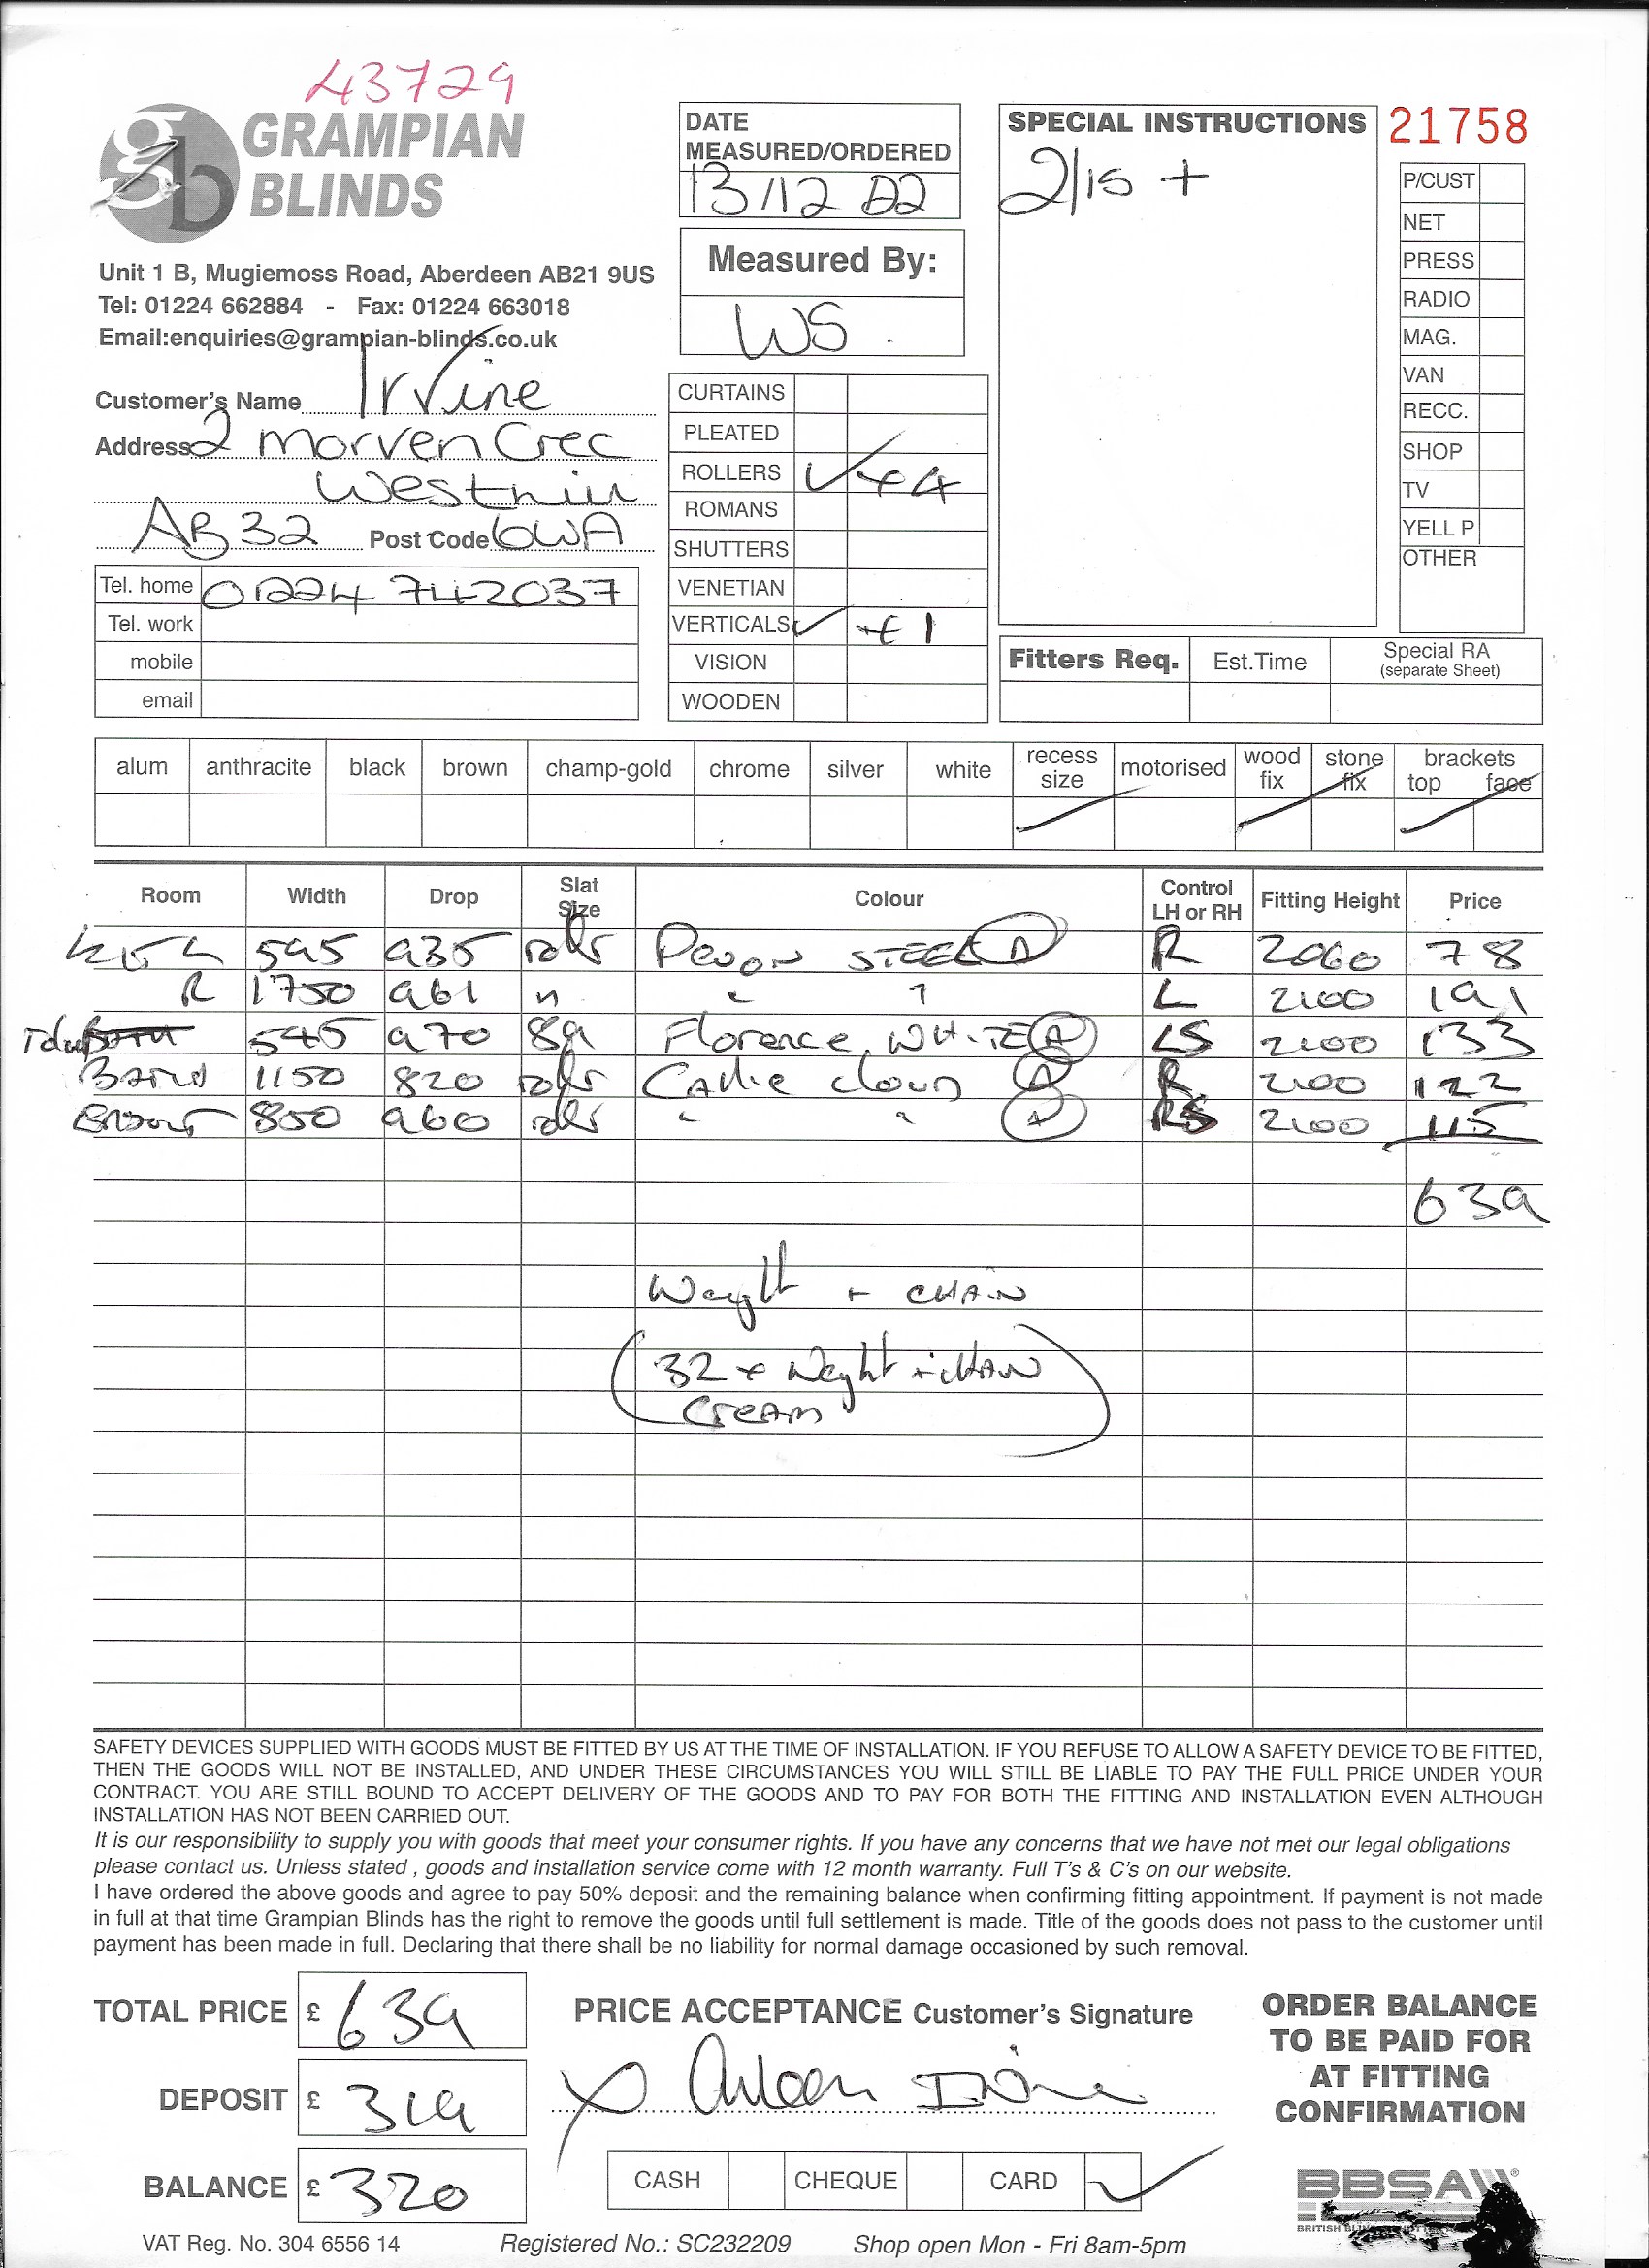 43729
GRAMPIAN
BLINDS
Unit 1 B, Mugiemoss Road, Aberdeen AB21 9US
Tel: 01224 662884 - Fax: 01224 663018
Email:enquiries@grampian-blinds.co.uk
Customer's Name Irvine
Address 2 Morven Cresc
Westhill
AB32 Post Code 6WA
Tel. home 01224 742037
Tel. work
mobile
email
DATE
MEASURED/ORDERED
13/12 D2
Measured By:
WS.
CURTAINS
PLEATED
ROLLERS ✓ x 4
ROMANS
SHUTTERS
VENETIAN
VERTICALS ✓ x 1
VISION
WOODEN
SPECIAL INSTRUCTIONS
2/15 +
21758
P/CUST
NET
PRESS
RADIO
MAG.
VAN
RECC.
SHOP
TV
YELL P
OTHER
Fitters Req. Est.Time Special RA
(separate Sheet)
alum anthracite black brown champ-gold chrome silver white recess size motorised wood fix stone fix brackets top face
Room Width Drop Slat Size Colour Control LH or RH Fitting Height Price
Kit L 595 935 rolr Devon STEEL A R 2060 78
R 1750 961 " " " L 2100 191
545 970 89 Florence WHITE A LS 2100 133
BATH 1150 820 rolr Carlie cloud A R 2100 122
800 960 rolr " " A 2100 115
639
Weight + CHAIN
(32 x Weight + CHAIN
Cream)
SAFETY DEVICES SUPPLIED WITH GOODS MUST BE FITTED BY US AT THE TIME OF INSTALLATION. IF YOU REFUSE TO ALLOW A SAFETY DEVICE TO BE FITTED,
THEN THE GOODS WILL NOT BE INSTALLED, AND UNDER THESE CIRCUMSTANCES YOU WILL STILL BE LIABLE TO PAY THE FULL PRICE UNDER YOUR
CONTRACT. YOU ARE STILL BOUND TO ACCEPT DELIVERY OF THE GOODS AND TO PAY FOR BOTH THE FITTING AND INSTALLATION EVEN ALTHOUGH
INSTALLATION HAS NOT BEEN CARRIED OUT.
It is our responsibility to supply you with goods that meet your consumer rights. If you have any concerns that we have not met our legal obligations
please contact us. Unless stated , goods and installation service come with 12 month warranty. Full T's & C's on our website.
I have ordered the above goods and agree to pay 50% deposit and the remaining balance when confirming fitting appointment. If payment is not made
in full at that time Grampian Blinds has the right to remove the goods until full settlement is made. Title of the goods does not pass to the customer until
payment has been made in full. Declaring that there shall be no liability for normal damage occasioned by such removal.
TOTAL PRICE £ 639
DEPOSIT £ 319
BALANCE £ 320
PRICE ACCEPTANCE Customer's Signature
X Irvine
CASH CHEQUE CARD ✓
ORDER BALANCE
TO BE PAID FOR
AT FITTING
CONFIRMATION
BBSA
BRITISH
VAT Reg. No. 304 6556 14 Registered No.: SC232209 Shop open Mon - Fri 8am-5pm